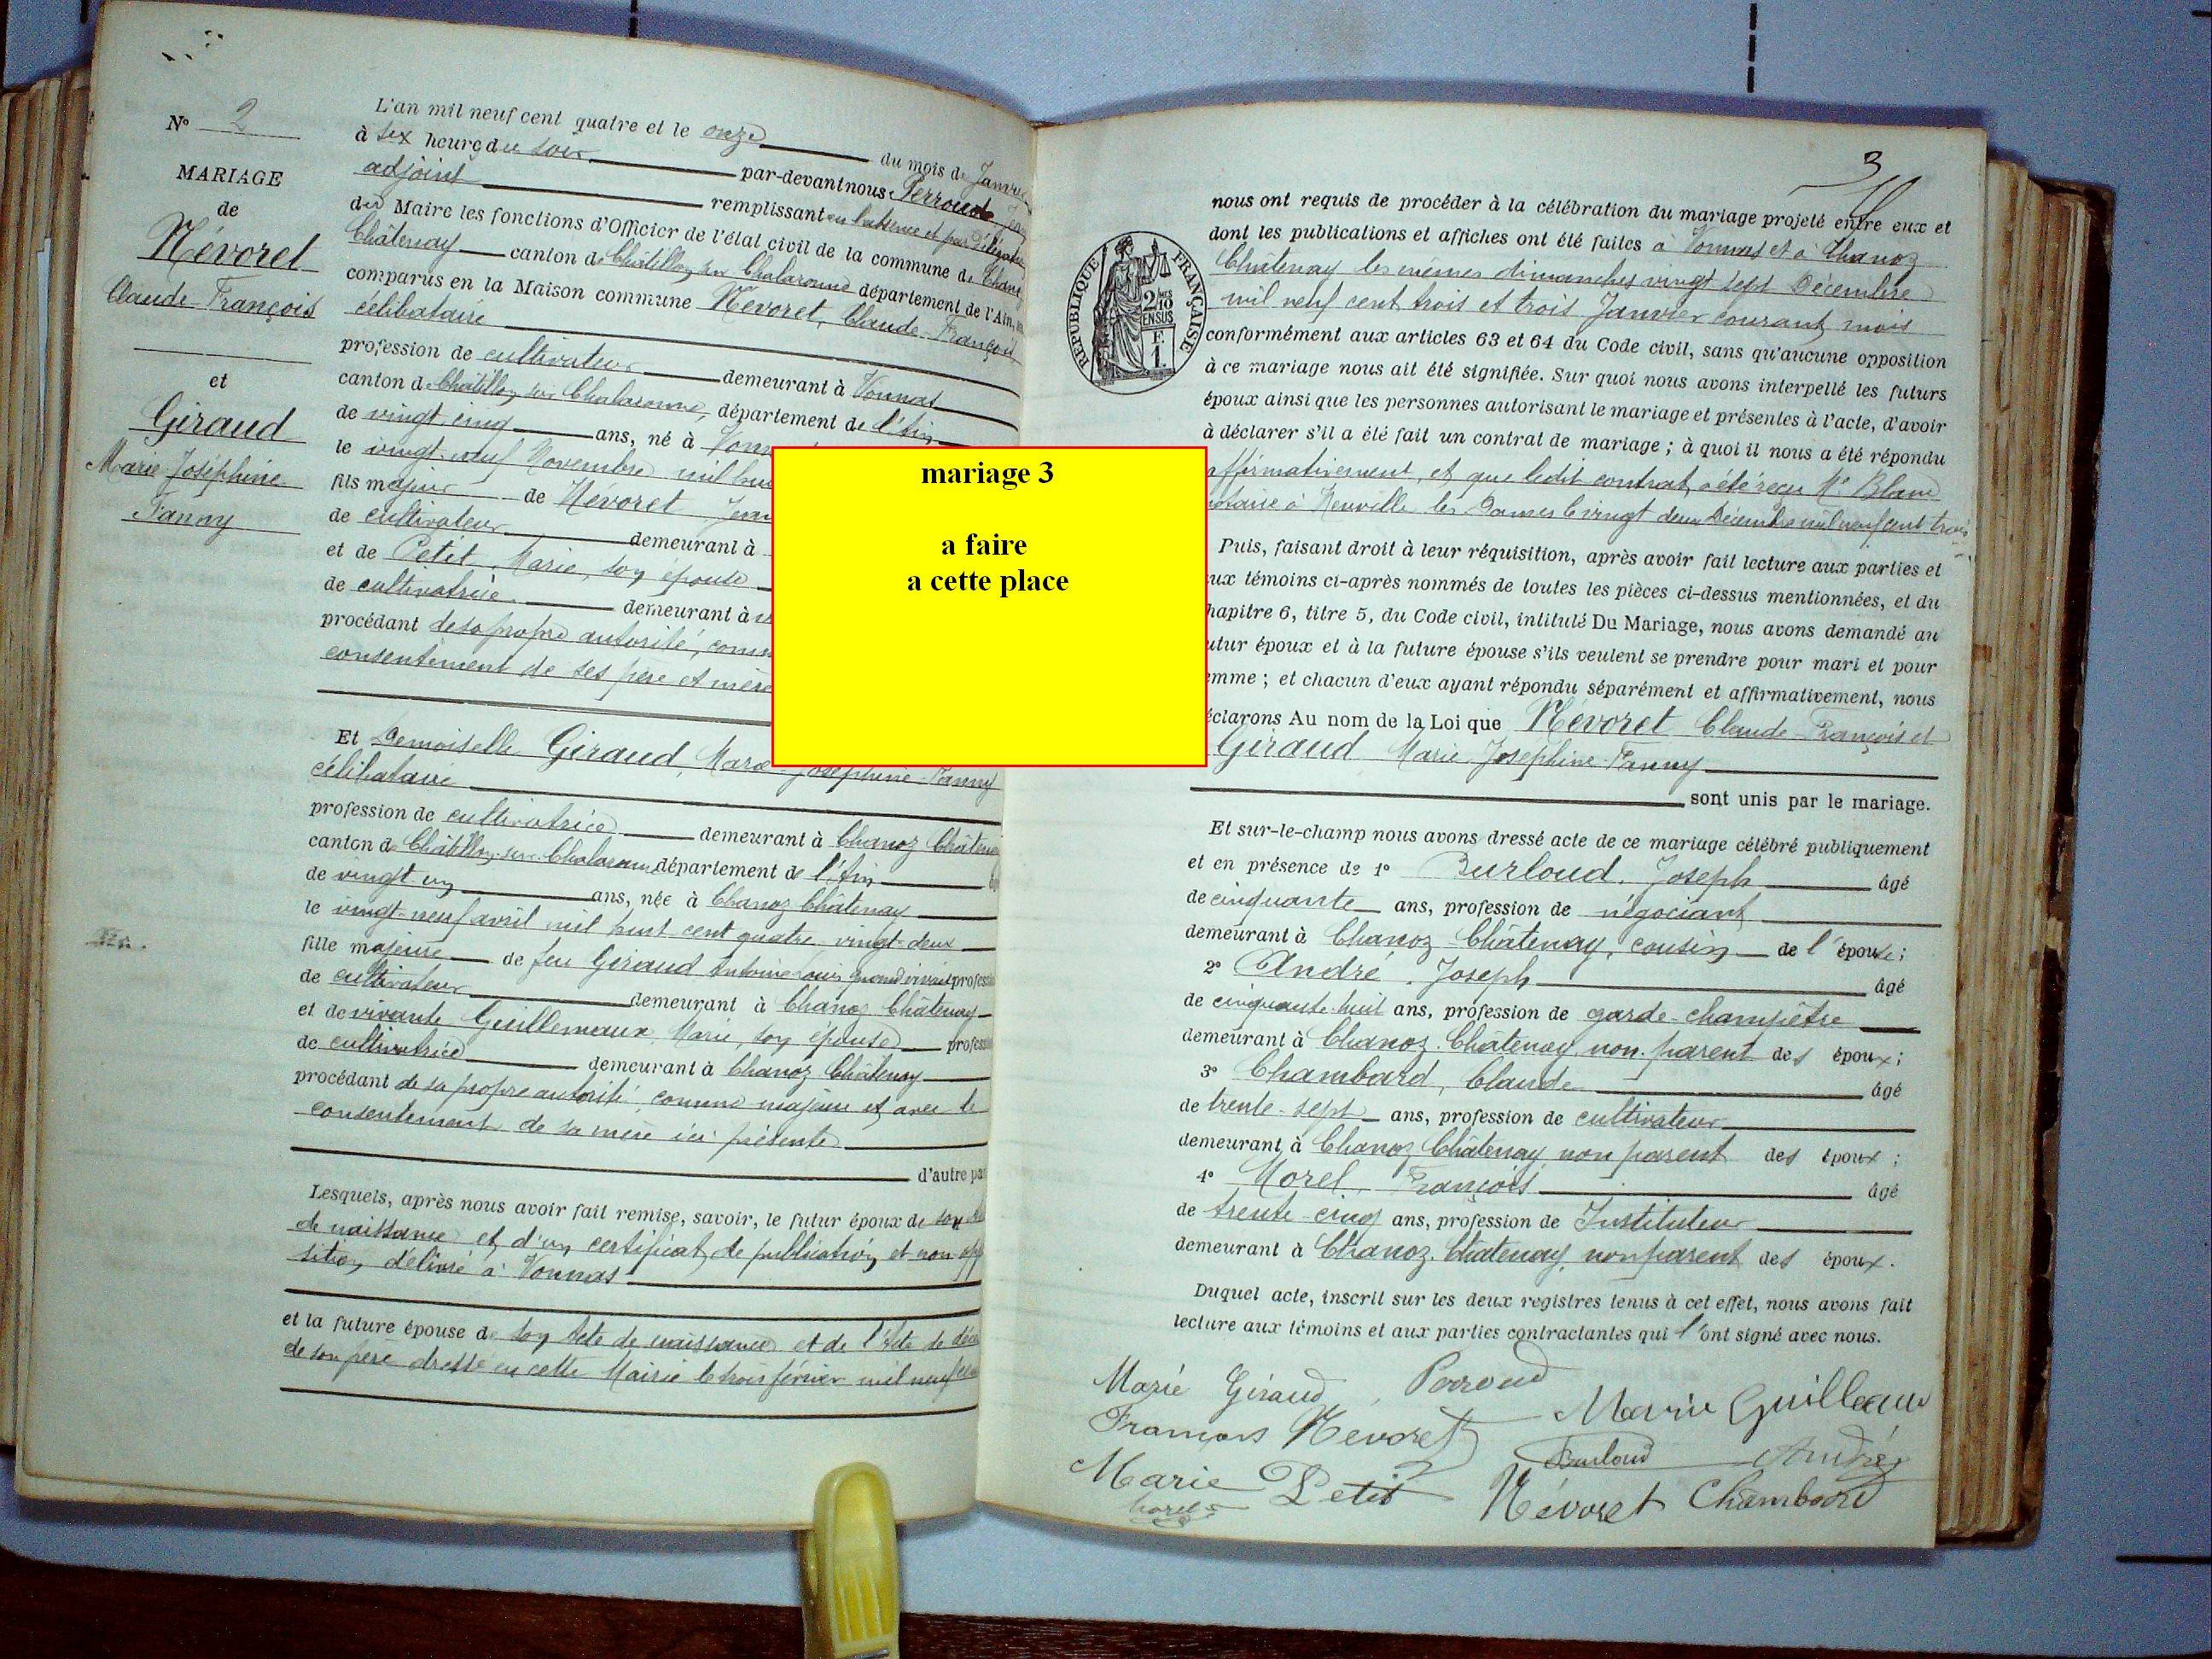 N° 2
MARIAGE
de
Névoret
Claude-François
et
Giraud
Marie-Joséphine
Fanny
L'an mil neuf cent quatre et le onze du mois de Janvi
à six heures du soir par-devant nous Perroud
adjoint remplissant en l'absence et par délégation
du Maire les fonctions d'Officier de l'état civil de la commune de Chanoz
Châtenay canton de Châtillon sur Chalaronne département de l'Ain,
comparus en la Maison commune Névoret, Claude-François
célibataire
profession de cultivateur demeurant à Vonnas
canton de Châtillon sur Chalaronne, département de l'Ain
de vingt cinq ans, né à Vonn
le vingt-neuf Novembre mil hui
fils majeur de Névoret Jean
de cultivateur demeurant à
et de Petit, Marie, son épouse
de cultivatrice demeurant à
procédant de sa propre autorité, comm
consentement de ses père et mère
Et Demoiselle Giraud, Marie-Joséphine-Fanny
célibataire
profession de cultivatrice demeurant à Chanoz Châtenay
canton de Châtillon sur Chalaronne, département de l'Ain
de vingt-un ans, née à Chanoz Châtenay
le vingt-neuf avril mil huit cent quatre vingt-deux
fille majeure de feu Giraud Antoine Louis quand vivait profess
de cultivateur demeurant à Chanoz Châtenay
et de vivante Guillemaux, Marie, son épouse profess
de cultivatrice demeurant à Chanoz Châtenay
procédant de sa propre autorité, comme majeure et avec le
consentement de sa mère ici présente
d'autre pa
Lesquels, après nous avoir fait remise, savoir, le futur époux de son
de naissance et d'un certificat de publication et non oppo
sition, délivré à Vonnas
et la future épouse de son Acte de naissance et de l'Acte de décè
de son père dressé en cette Mairie le trois février mil neuf cent
mariage 3
a faire
a cette place
3
RÉPUBLIQUE FRANÇAISE
2/10 MES
EN SUS
E.
1.
nous ont requis de procéder à la célébration du mariage projeté entre eux et
dont les publications et affiches ont été faites à Vonnas et à Chanoz
Châtenay les mêmes dimanches vingt sept Décembre
mil neuf cent trois et trois Janvier courant mois
conformément aux articles 63 et 64 du Code civil, sans qu'aucune opposition
à ce mariage nous ait été signifiée. Sur quoi nous avons interpellé les futurs
époux ainsi que les personnes autorisant le mariage et présentes à l'acte, d'avoir
à déclarer s'il a été fait un contrat de mariage ; à quoi il nous a été répondu
affirmativement, et que ledit contrat a été reçu Me Blanc
notaire à Neuville les Dames le vingt deux Décembre mil neuf cent trois
Puis, faisant droit à leur réquisition, après avoir fait lecture aux parties et
aux témoins ci-après nommés de toutes les pièces ci-dessus mentionnées, et du
hapitre 6, titre 5, du Code civil, intitulé Du Mariage, nous avons demandé au
utur époux et à la future épouse s'ils veulent se prendre pour mari et pour
emme ; et chacun d'eux ayant répondu séparément et affirmativement, nous
éclarons Au nom de la Loi que Névoret Claude-François et
Giraud Marie-Joséphine-Fanny
sont unis par le mariage.
Et sur-le-champ nous avons dressé acte de ce mariage célébré publiquement
et en présence de 1° Burloud, Joseph âgé
de cinquante ans, profession de négociant
demeurant à Chanoz-Châtenay, cousin de l'épouse ;
2° André, Joseph âgé
de cinquante-huit ans, profession de garde-champêtre
demeurant à Chanoz-Châtenay, non parent des époux ;
3° Chambard, Claude âgé
de trente-sept ans, profession de cultivateur
demeurant à Chanoz Châtenay non parent des époux ;
4° Morel, François âgé
de trente-cinq ans, profession de Instituteur
demeurant à Chanoz-Châtenay, non parent des époux.
Duquel acte, inscrit sur les deux registres tenus à cet effet, nous avons fait
lecture aux témoins et aux parties contractantes qui l'ont signé avec nous.
Marie Giraud Perroud
François Névoret Marie Guilleau
Burloud André
Marie Petit Névoret Chambard
Morel